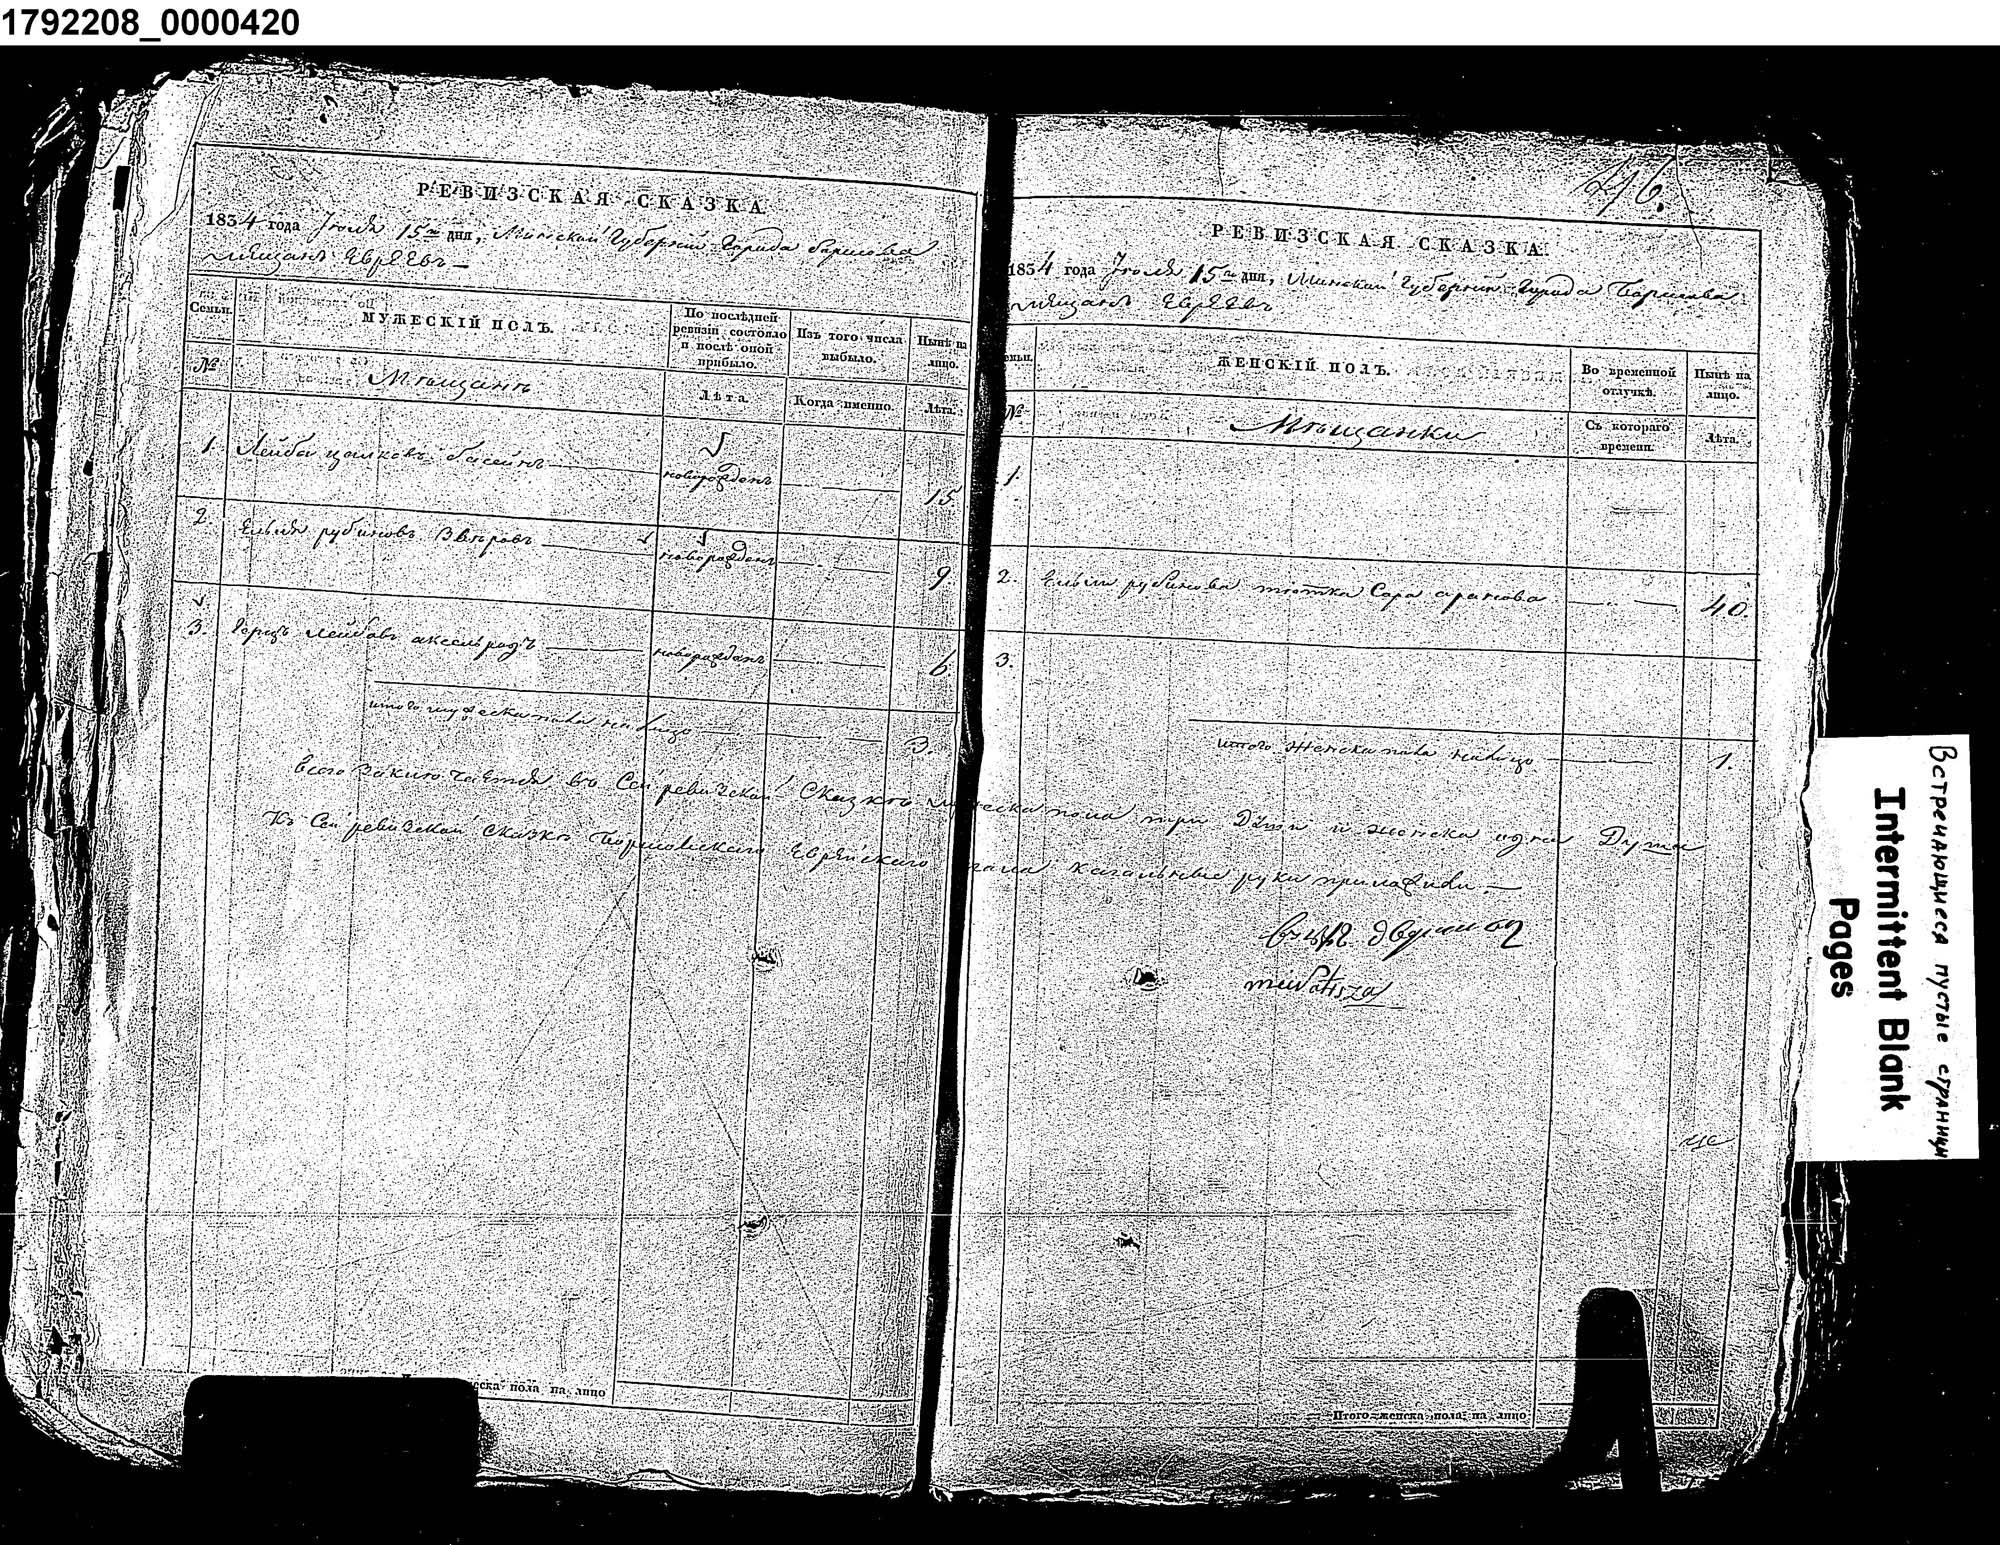 1792208_0000420
РЕВИЗСКАЯ СКАЗКА
1834 года Іюля 15го дня, Минской Губерніи Города борисова
мещанъ Евреевъ
Семьи. МУЖЕСКІЙ ПОЛЪ. По послѣдней ревизіи состояло и послѣ оной прибыло. Изъ того числа выбыло. Нынѣ на лицо.
№ Мѣщанъ Лѣта. Когда именно. Лѣта.
1. Лейба цалковъ басейнъ новорожденъ 15
2. Ельля рубиновъ новорожденъ 9
3. Герцъ лейбовъ аксельродъ новорожденъ 6
итого мужеска пола на лицо 3.
РЕВИЗСКАЯ СКАЗКА.
1834 года Іюля 15го дня, Минской Губерніи Города Борисова
мещанъ Евреевъ
ЖЕНСКІЙ ПОЛЪ. Во временной отлучкѣ. Нынѣ на лицо.
№ Мѣщанки Съ котораго времени. Лѣта.
1.
2. Ельли рубинова тютка Сора аранова 40.
3.
итого женска пола налицо 1.
всего Заключается въ Сей ревизской Сказкѣ мужеска пола три Души и женска одна Душа
Къ Сей ревизской Сказкѣ Борисовскаго Еврейскаго кагала кагальные руки приложили
Итого мужеска пола на лицо
Итого женска пола на лицо
Встречающиеся пустые страницы
Intermittent Blank
Pages